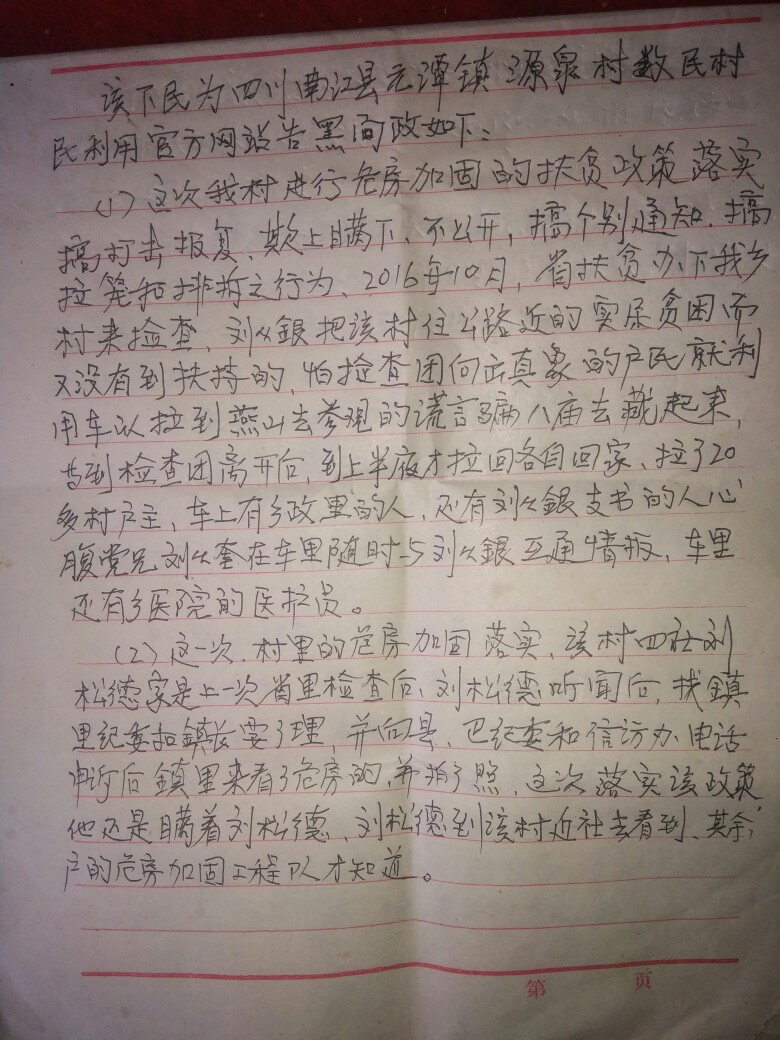 该下民为四川南江县元潭镇源泉村数民村
民利用官方网站告黑问政如下：
（1）这次我村进行危房加固的扶贫政策落实
搞打击报复、欺上瞒下、不公开，搞个别通知、搞
拉笼和排挤之行为、2016年10月，省扶贫办下我乡
村来捡查，刘从銀把该村住公路近的实属贫困而
又没有到扶持的，怕捡查团问出真象的户民就利
用车以拉到燕山去参观的谎言骗八庙去藏起来，
当到检查团离开后，到上半夜才拉回各自回家、拉了20
多村户主，车上有乡政里的人，还有刘从銀支书的人心
腹党兄刘从奎在车里随时与刘从銀互通情报，车里
还有乡医院的医护员。
（2）这一次，村里的危房加固落实，该村四社刘
松德家是上一次省里检查后，刘松德听闻后，找鎮
里纪委和鎮长要了理，并向县、巴纪委和信访办电话
申诉后鎮里来看了危房的，并拍了照，这次落实该政策
他还是瞒着刘松德、刘松德到该村近社去看到、其余
户的危房加固工程队才知道。
第 页